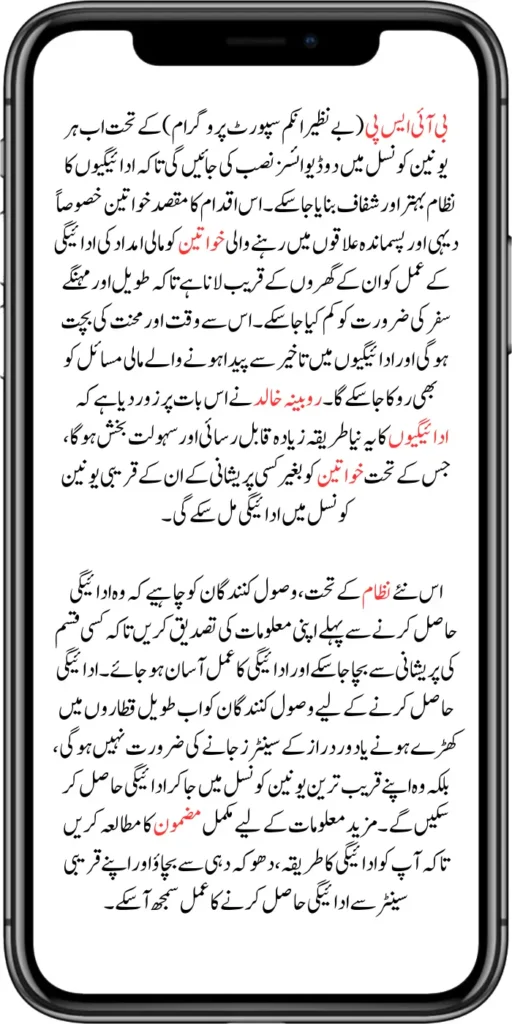 بی آئی ایس پی (بے نظیر انکم سپورٹ پروگرام) کے تحت اب ہر
یونین کونسل میں دو ڈیوائسز نصب کی جائیں گی تاکہ ادائیگیوں کا
نظام بہتر اور شفاف بنایا جا سکے۔ اس اقدام کا مقصد خواتین خصوصاً
دیہی اور پسماندہ علاقوں میں رہنے والی خواتین کو مالی امداد کی ادائیگی
کے عمل کو ان کے گھروں کے قریب لانا ہے تاکہ طویل اور مہنگے
سفر کی ضرورت کو کم کیا جا سکے۔ اس سے وقت اور محنت کی بچت
ہوگی اور ادائیگیوں میں تاخیر سے پیدا ہونے والے مالی مسائل کو
بھی روکا جا سکے گا۔ روبینہ خالد نے اس بات پر زور دیا ہے کہ
ادائیگیوں کا یہ نیا طریقہ زیادہ قابل رسائی اور سہولت بخش ہوگا،
جس کے تحت خواتین کو بغیر کسی پریشانی کے ان کے قریبی یونین
کونسل میں ادائیگی مل سکے گی۔
اس نئے نظام کے تحت، وصول کنندگان کو چاہیے کہ وہ ادائیگی
حاصل کرنے سے پہلے اپنی معلومات کی تصدیق کریں تاکہ کسی قسم
کی پریشانی سے بچا جا سکے اور ادائیگی کا عمل آسان ہو جائے۔ ادائیگی
حاصل کرنے کے لیے وصول کنندگان کو اب طویل قطاروں میں
کھڑے ہونے یا دور دراز کے سینٹرز جانے کی ضرورت نہیں ہوگی،
بلکہ وہ اپنے قریب ترین یونین کونسل میں جا کر ادائیگی حاصل کر
سکیں گے۔ مزید معلومات کے لیے مکمل مضمون کا مطالعہ کریں
تاکہ آپ کو ادائیگی کا طریقہ، دھوکہ دہی سے بچاؤ اور اپنے قریبی
سینٹر سے ادائیگی حاصل کرنے کا عمل سمجھ آ سکے۔